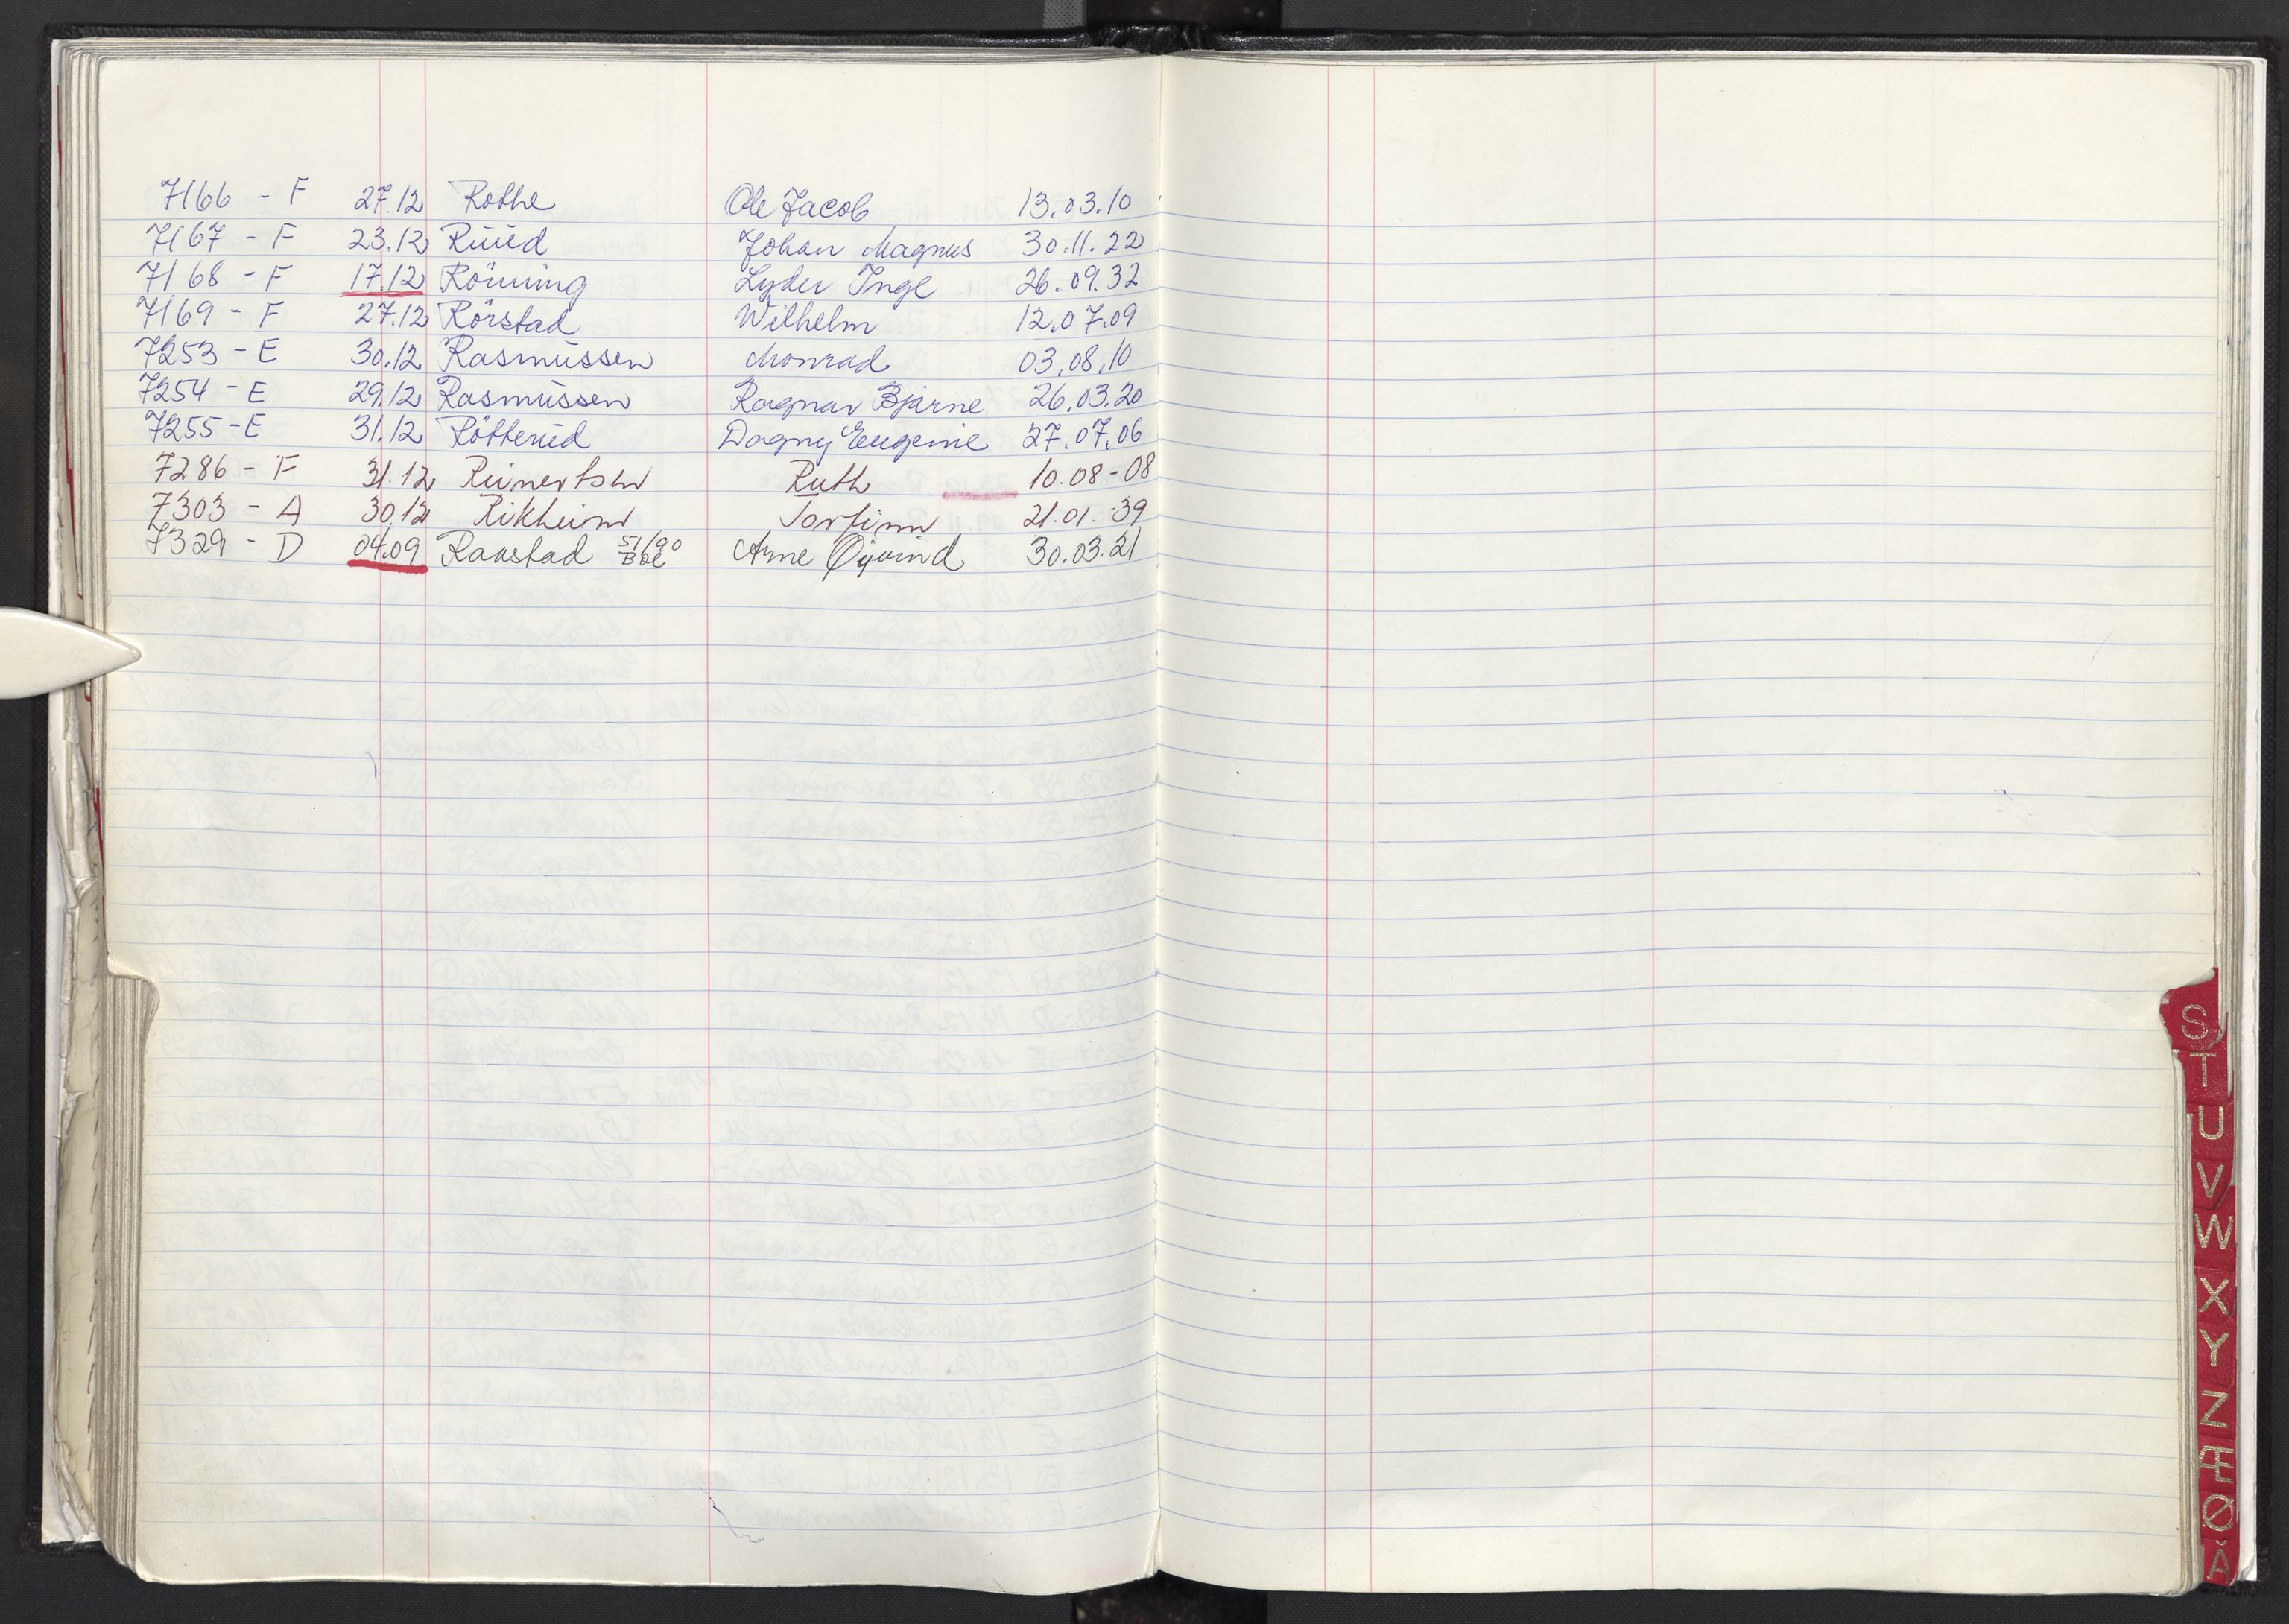 7166 - F 27.12 Rothe Ole Jacob 13.03.10
7167 - F 23.12 Ruud Johan Magnus 30.11.22
7168 - F 17.12 Rönning Lyder Inge 26.09.32
7169 - F 27.12 Rörstad Wilhelm 12.07.09
7253 - E 30.12 Rasmussen Monrad 03.08.10
7254 - E 29.12 Rasmussen Ragnar Bjarne 26.03.20
7255 - E 31.12 Rötterud Dagny Eugenie 27.07.06
7286 - F 31.12 Reinertsen Ruth 10.08-08
7303 - A 30.12 Rikheim Torfinn 21.01.39
7329 - D 04.09 Raastad 51/90 Boe Arne Øyvind 30.03.21
S
T
U
V
W
X
Y
Z
Æ
Ø
Å